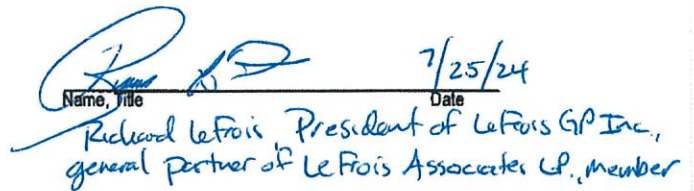 7/25/24
Name, Title Date
Richard LeFrois, President of LeFrois GP Inc.,
general partner of LeFrois Associates LP., member